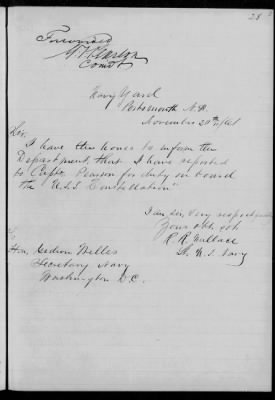 28
Forwarded
G F Pearson
Comdt
Navy Yard
Portsmouth N.H.
November 20th 1861
Sir,
I have the honor to inform the
Department, that I have reported
to Capt. Pearson for duty on board
the U.S.S. Constellation"
I am, Sir, Very respectfully
Your obt. svt.
R. R. Wallace
Lt. U.S. Navy
Hon. Gideon Welles
Secretary Navy
Washington D.C.